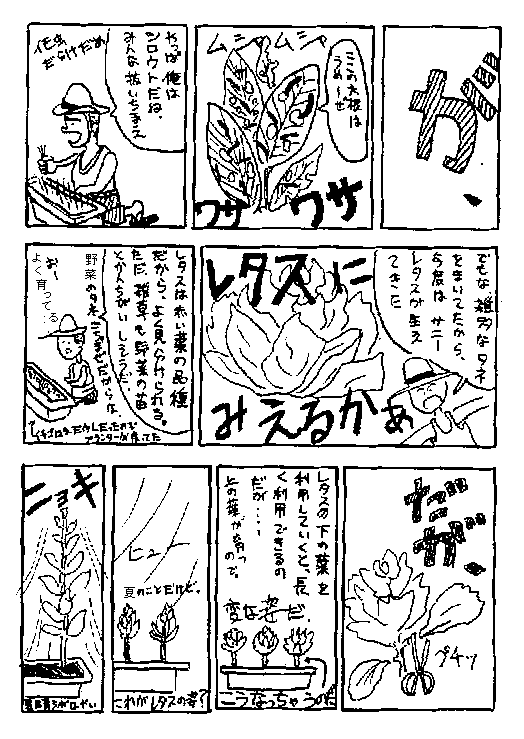 が
ムシャムシャ
ここの大根は
うめ〜ぜ
ワサ
ワサ
やっぱ俺は
シロウトだね。
みんな抜いちまえ
花虫
だらけだぁ
でもな、雑多なタネ
をまいてたから、
今度は サニー
レタスが生え
てきた
レタスに
みえるかぁ
レタスは赤い葉の品種
だから、よく見分けられる。
ただ、雑草も野菜の苗
とかんちがいしそうだ。
野菜のタネ
おー
よく育ってる…
だが
プチッ
レタスの下の葉を
利用していくと、長
く利用できるの
だが・・・
上の葉が育つ
ので。
変な姿だ。
こうなっちゃうのだ
ヒュー
夏のことだけど。
これがレタスの姿?
ニョキ